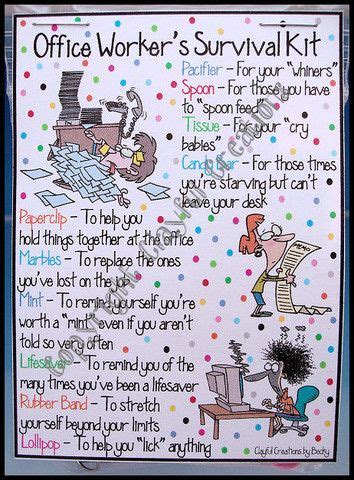 Office Worker's Survival Kit
Pacifier - For your "whiners"
Spoon - For those you have
to "spoon feed"
Tissue - For your "cry
babies"
Candy Bar - For those times
you're starving but can't
leave your desk
Paperclip - To help you
hold things together at the office
Marbles - To replace the ones
you've lost on the job
Mint - To remind yourself you're
worth a "mint" even if you aren't
told so very often
Lifesaver - To remind you of the
many times you've been a lifesaver
Rubber Band - To stretch
yourself beyond your limits
Lollipop - To help you "lick" anything
MEMO
Clayful Creations by Becky
Copyright Clayful Creations